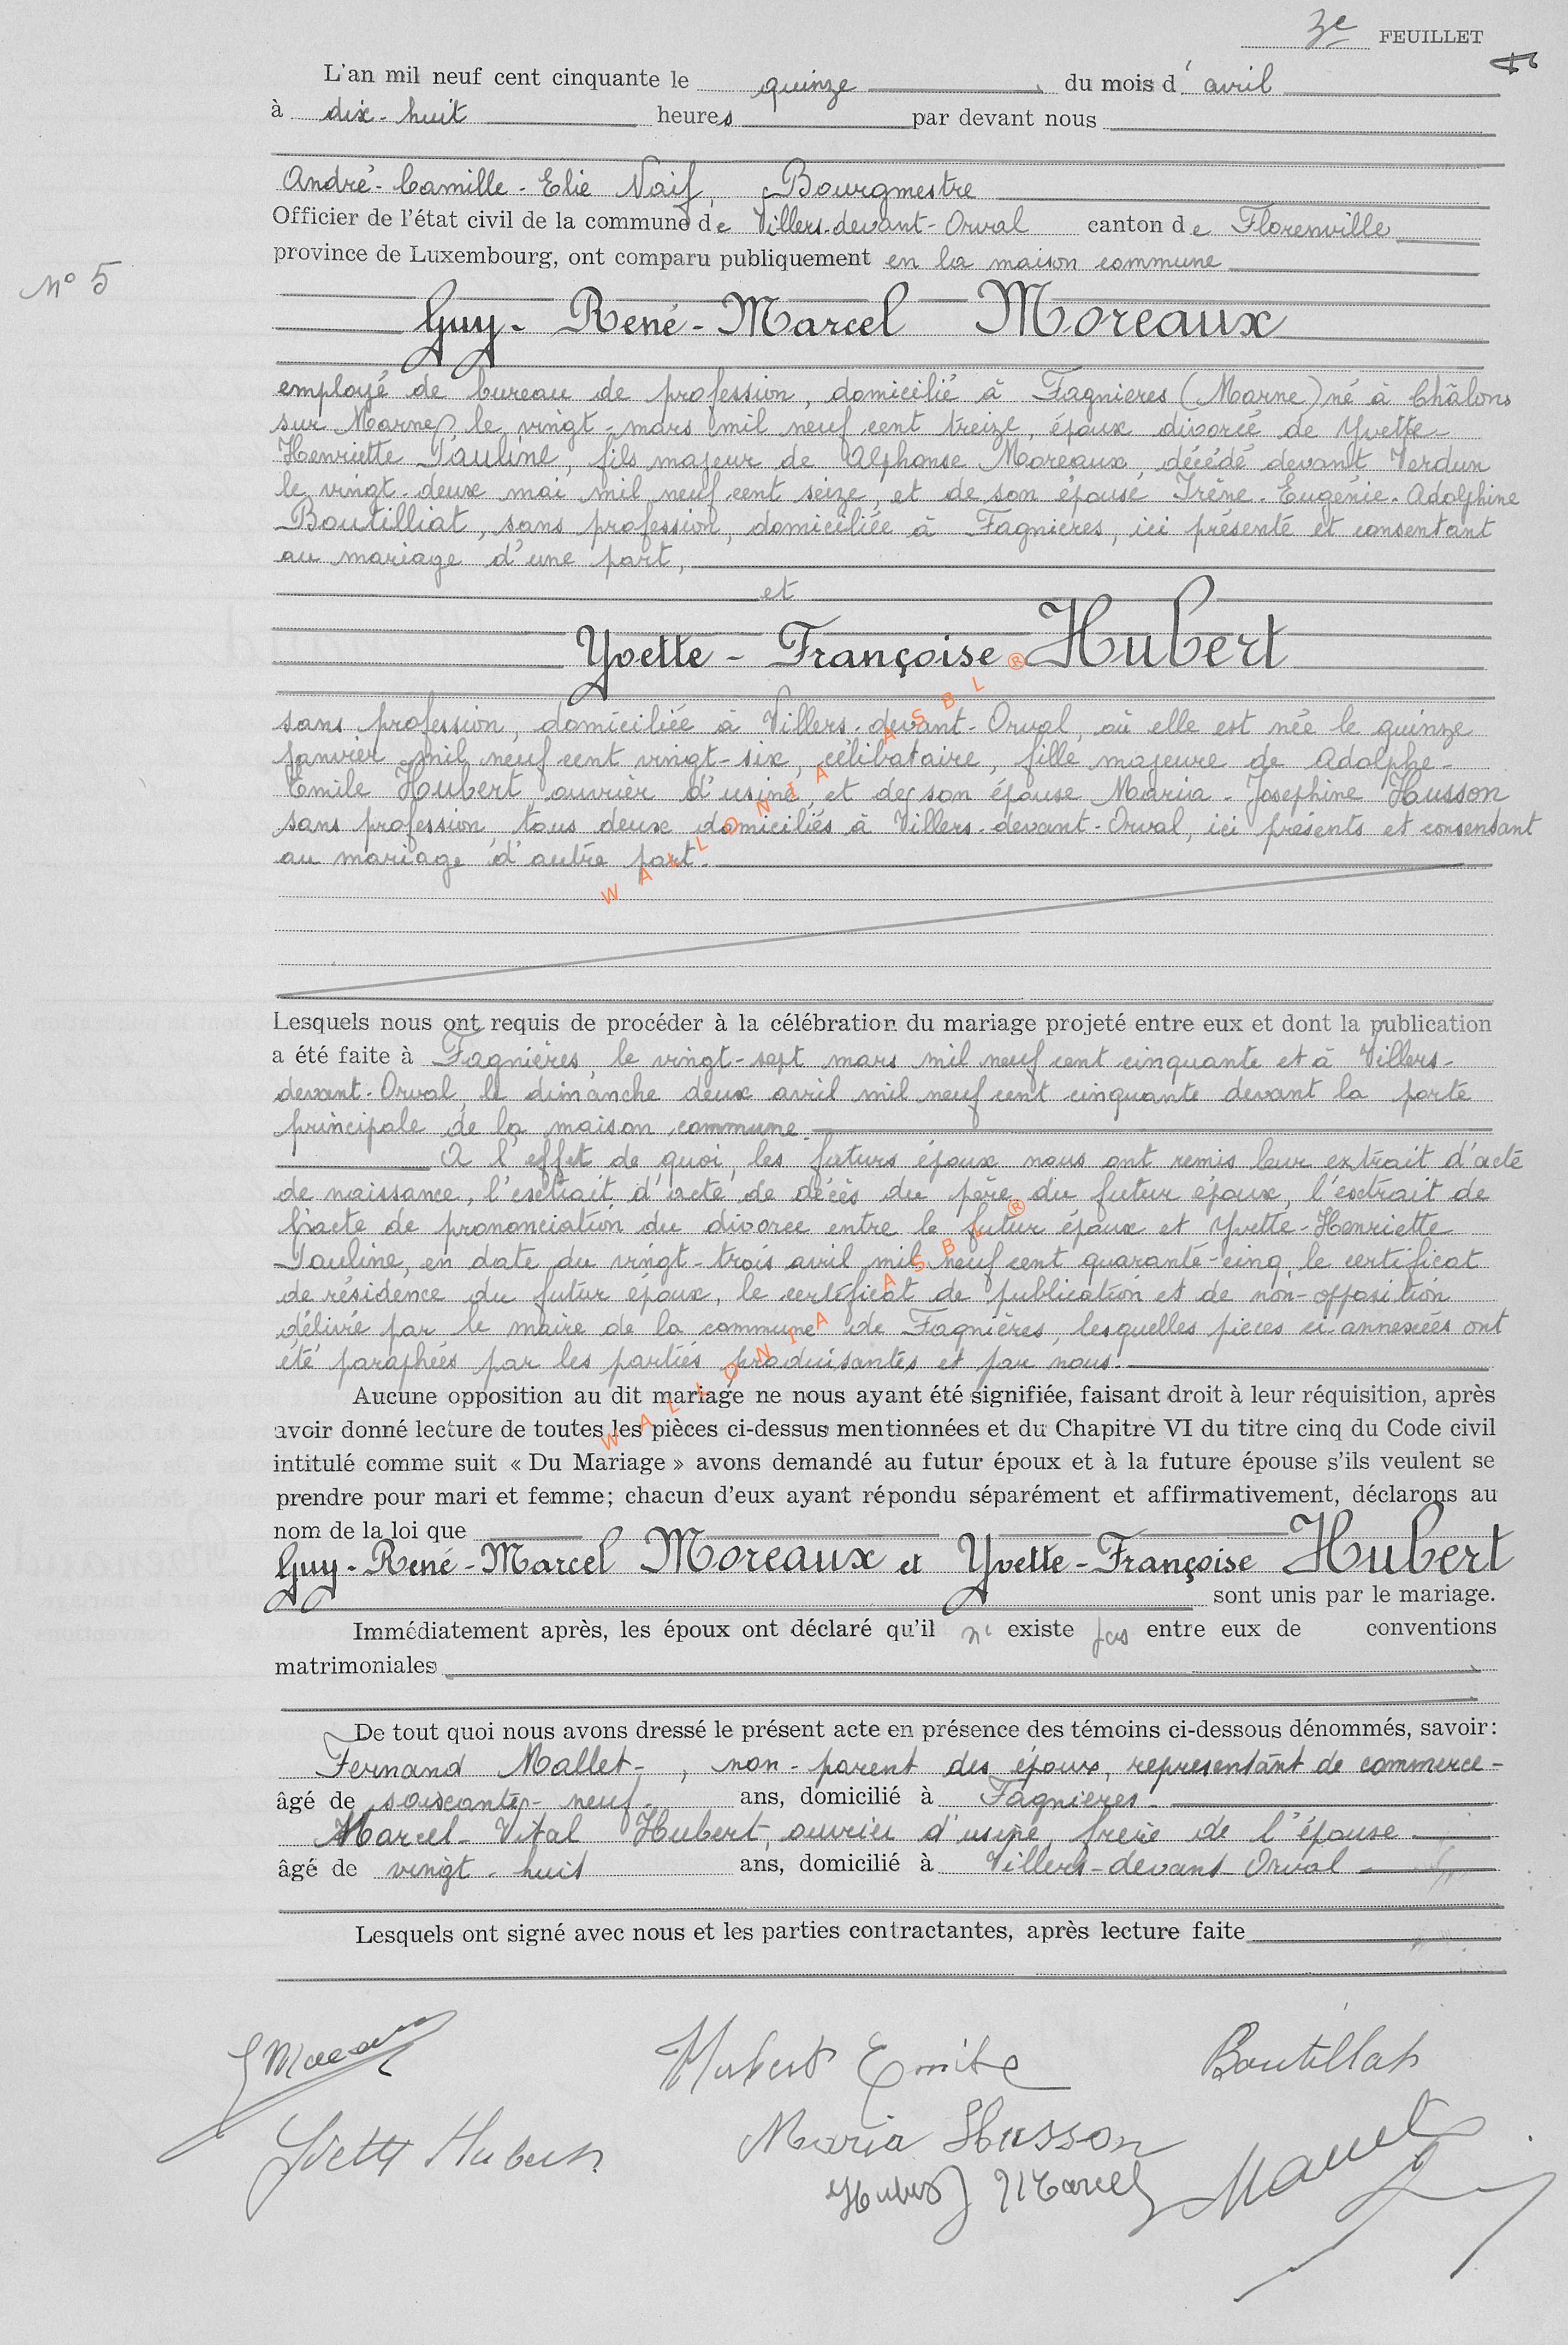 3e FEUILLET
L'an mil neuf cent cinquante le quinze du mois d'avril
à dix-huit heures par devant nous
André-Camille-Elie Naif, Bourgmestre
Officier de l'état civil de la commune de Villers-devant-Orval canton de Florenville
province de Luxembourg, ont comparu publiquement en la maison commune
N° 5
Guy-René-Marcel Moreaux
employé de bureau de profession, domicilié à Fagnieres (Marne) né à Châlons
sur Marne, le vingt-mars mil neuf cent treize, époux divorcé de Yvette-
Henriette Pauline, fils majeur de Alphonse Moreaux, décédé devant Verdun
le vingt-deux mai mil neuf cent seize, et de son épouse Irène-Eugénie-Adolphine
Boutilliat, sans profession, domiciliée à Fagnières, ici présente et consentant
au mariage d'une part,
et
Yvette-Françoise Hubert
sans profession, domiciliée à Villers-devant-Orval, où elle est née le quinze
janvier mil neuf cent vingt-six, célibataire, fille majeure de Adolphe-
Emile Hubert, ouvrier d'usine, et de son épouse Maria-Josephine Husson
sans profession, tous deux domiciliés à Villers-devant-Orval, ici présents et consentant
au mariage d'autre part.
WALLONIA ASBL ®
Lesquels nous ont requis de procéder à la célébration du mariage projeté entre eux et dont la publication
a été faite à Fagnières, le vingt-sept mars mil neuf cent cinquante et à Villers-
devant-Orval, le dimanche deux avril mil neuf cent cinquante devant la porte
principale de la maison commune.
A l'effet de quoi, les futurs époux nous ont remis leur extrait d'acte
de naissance, l'extrait d'acte de décès du père du futur époux, l'extrait de
l'acte de prononciation du divorce entre le futur époux et Yvette-Henriette
Pauline, en date du vingt-trois avril mil neuf cent quarante-cinq, le certificat
de résidence du futur époux, le certificat de publication et de non-opposition
délivré par le maire de la commune de Fagnières, lesquelles pièces ci annexées ont
été paraphées par les parties produisantes et par nous.
WALLONIA ASBL ®
Aucune opposition au dit mariage ne nous ayant été signifiée, faisant droit à leur réquisition, après
avoir donné lecture de toutes les pièces ci-dessus mentionnées et du Chapitre VI du titre cinq du Code civil
intitulé comme suit « Du Mariage » avons demandé au futur époux et à la future épouse s'ils veulent se
prendre pour mari et femme; chacun d'eux ayant répondu séparément et affirmativement, déclarons au
nom de la loi que
Guy-René-Marcel Moreaux et Yvette-Françoise Hubert
sont unis par le mariage.
Immédiatement après, les époux ont déclaré qu'il n'existe pas entre eux de conventions
matrimoniales
De tout quoi nous avons dressé le présent acte en présence des témoins ci-dessous dénommés, savoir:
Fernand Mallet-, non-parent des époux, représentant de commerce-
âgé de soixante-neuf- ans, domicilié à Fagnieres-
Marcel-Vital Hubert, ouvrier d'usine, frère de l'épouse
âgé de vingt-huit ans, domicilié à Villers-devant-Orval
Lesquels ont signé avec nous et les parties contractantes, après lecture faite
Hubert Emile
Boutillat
Yvette Hubert
Maria Husson
Hubert Marcel